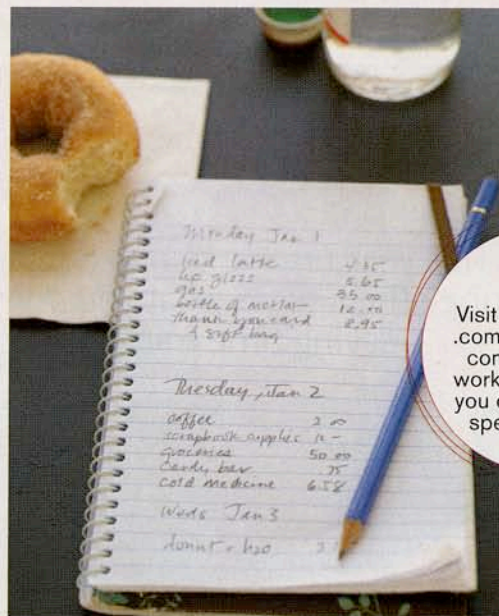 Monday Jan 1
Iced latte 4.35
lip gloss 5.65
gas 35 00
bottle of merlot 12.00
thank you card 2.95
& gift bag
Tuesday, Jan 2
coffee 2 00
scrapbook supplies 12 -
groceries 50 00
Candy bar 75
Cold medicine 6.58
Weds Jan 3
donut + h2o
Visit
.com
work
you